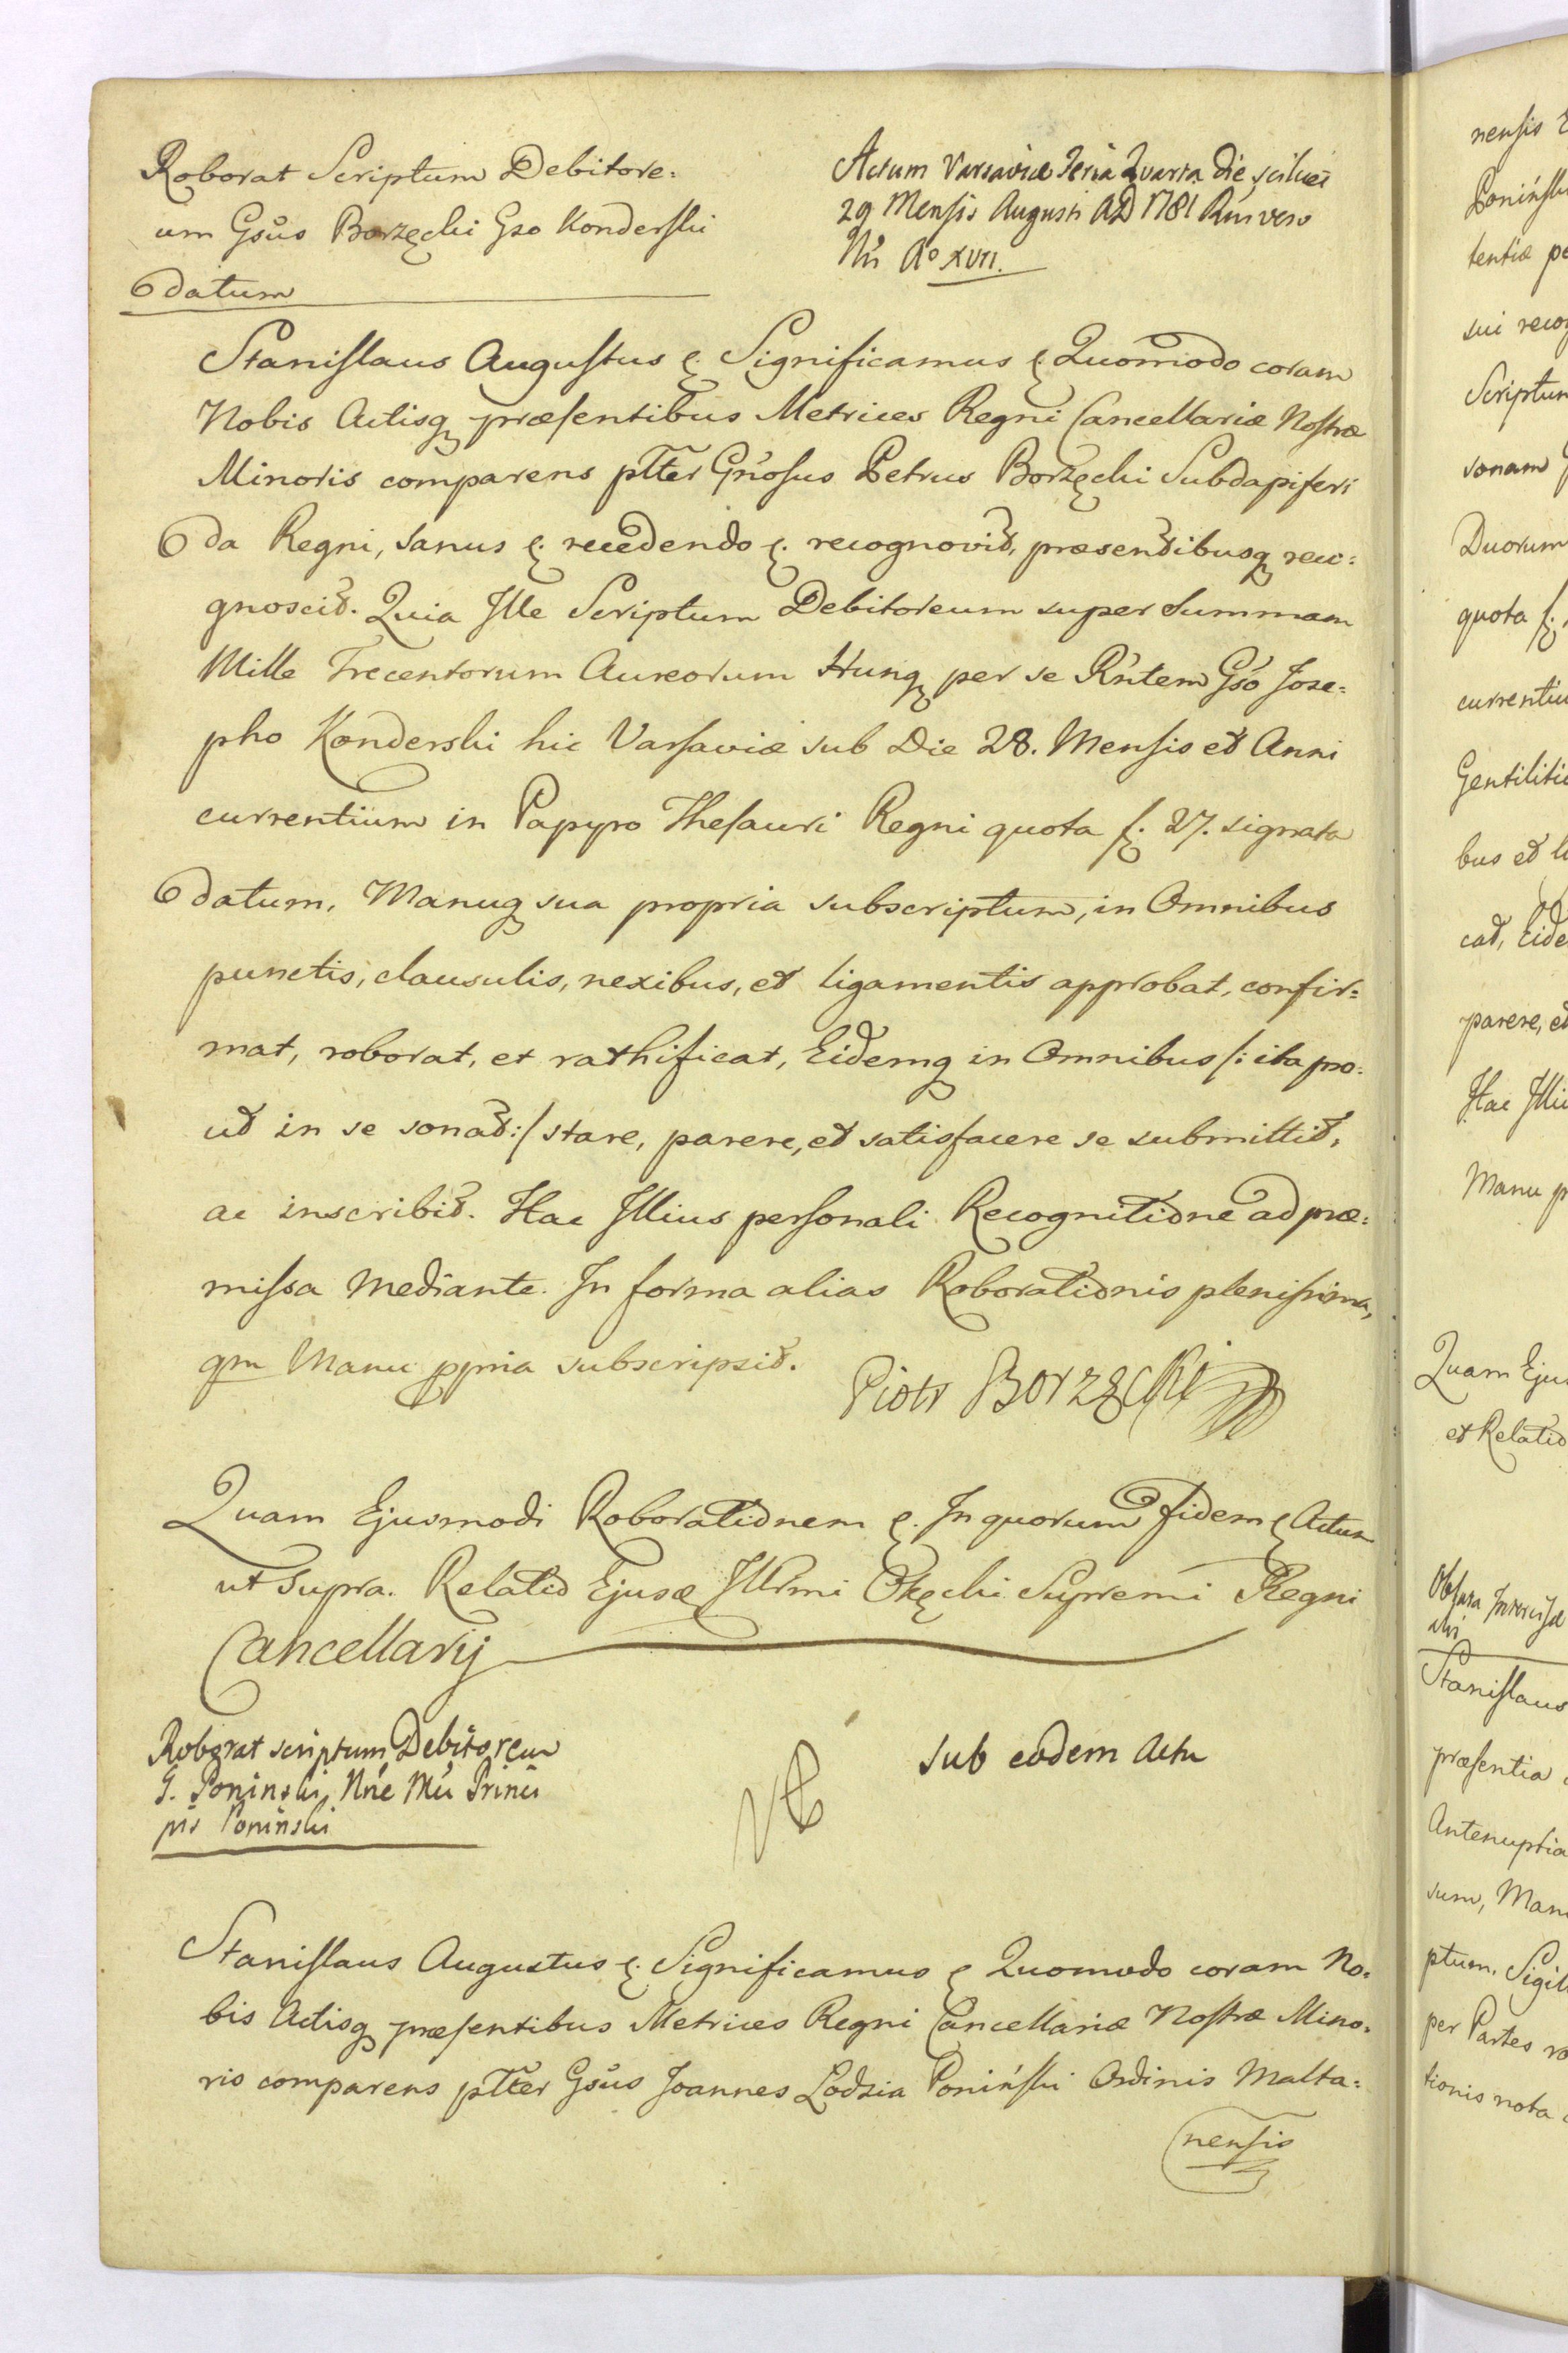 Roborat Scriptum Debitore:
um Gsus Borzęcki Gso Konderski
datum
Actum Varsaviæ Feria Quarta Die scilicet
29 Mensis Augusti AD 1781 Rni vero
Nri Ao XVII.
Stanislaus Augustus &. Significamus &. Quomodo coram
Nobis Actisq præsentibus Metrices Regni Cancellariæ Nostræ
Minoris comparens pltter Gnosus Petrus Borzęcki Subdapiferi
da Regni, sanus &. recedendo &. recognovit, præsentibusq reco:
gnoscit. Quia Ille Scriptum Debitoreum super Summam
Mille Trecentorum Aureorum Hungq per se Rntem Gso Jose:
pho Konderski hic Varsaviæ sub Die 28. Mensis et Anni
currentium in Papyro Thesauri Regni quota f. 27. signata
datum, Manuq sua propria subscriptum, in Omnibus
punctis, clausulis, nexibus, et ligamentis approbat, confir=
mat, roborat, et rathificat, Eidemq in Omnibus /: ita pro:
ut in se sonat :/ stare, parere, et satisfacere se submittit,
ac inscribit. Hac Illius personali Recognitione ad præ:
missa mediante. In forma alias Roborationis plenissima,
qm Manu ppria subscripsit.
Piotr Borzęcki
Quam Ejusmodi Roborationem &. In quorum fidem & Actum
ut Supra. Relatio Ejusdæ Illrmi Okęcki Supremi Regni
Cancellarij
Roborat scriptum Debitoreum
G. Poninski, Nne Mci Princi
pis Poninski
Sub eodem Actu
Stanislaus Augustus &. Significamus & Quomodo coram No:
bis Actisq præsentibus Metrices Regni Cancellariæ Nostræ Mino:
ris comparens pltter Gsus Joannes Lodzia Poniński Ordinis Malta:
nensis
nensis
Poninski
tentiæ
sui
Scriptum
sonam
Duorum
quota f.
currentiu
Gentilitio
bus et
cat, Eide
parere, et
Hac Illiu
Manu
Quam Ejus
et Relatio
Stanislaus
præsentia
Antenuptia
sum, Manu
ptum. Sigil
per Partes
tionis nota